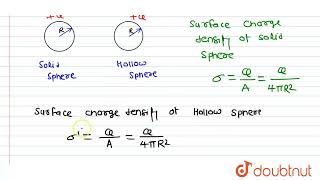 +Q +Q
R R
Solid Sphere
Hollow Sphere
Surface charge
density of solid
Sphere
σ = Q/A = Q/4πR²
Surface charge density of Hollow Sphere
σ' = Q/A = Q/4πR²
doubtnut